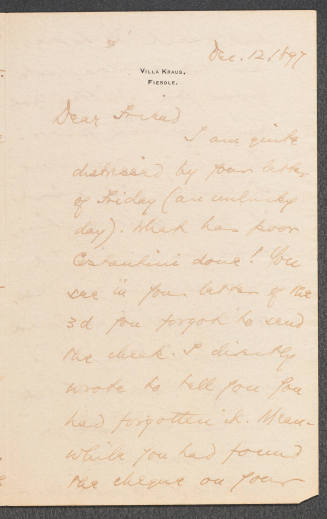 Dec. 12, 1897
VILLA KRAUS,
FIESOLE.
Dear Friend
I am quite
distressed by your letter
of Friday (an unlucky
day). What has poor
Costantini done! You
see in your letter of the
3d you forgot to send
the check. I directly
wrote to tell you you
had forgotten it. Mean-
while you had found
the cheque on your